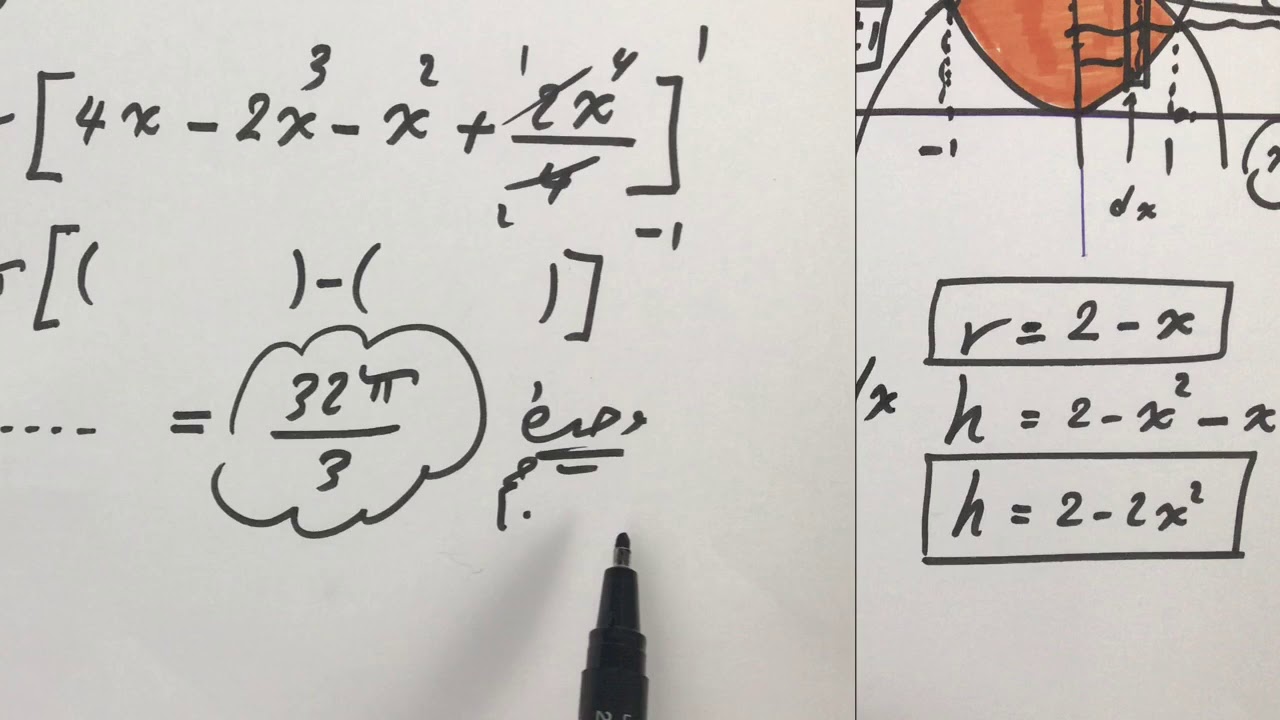 [4x - 2x³ - x² + 2x⁴/4]¹₋₁
1
2
π[( ) - ( )]
.... = 32π/3
-1 1
dx
r = 2 - x
h = 2 - x² - x
h = 2 - 2x²